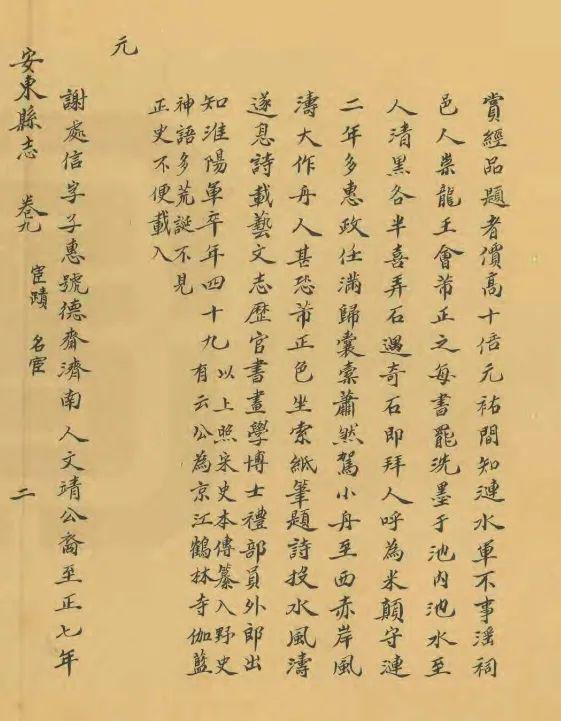 賞經品題者價高十倍元祐間知漣水軍不事滛祠
邑人崇龍王會芾正之每書罷洗墨于池内池水至
人清黑各半喜弄石遇奇石即拜人呼為米顛守漣
二年多惠政任滿歸囊橐蕭然駕小舟至西赤岸風
濤大作舟人甚恐芾正色坐索紙筆題詩投水風濤
遂息詩載藝文志歷官書畫學博士禮部員外郎出
知淮陽軍卒年四十九
以上照宋史本傳纂入野史
有云公為京江鶴林寺伽藍
神語多荒誕不見
正史不便載入
元
謝處信字子惠號德齋濟南人文靖公裔至正七年
安東縣志 卷九 宦蹟 名宦 二